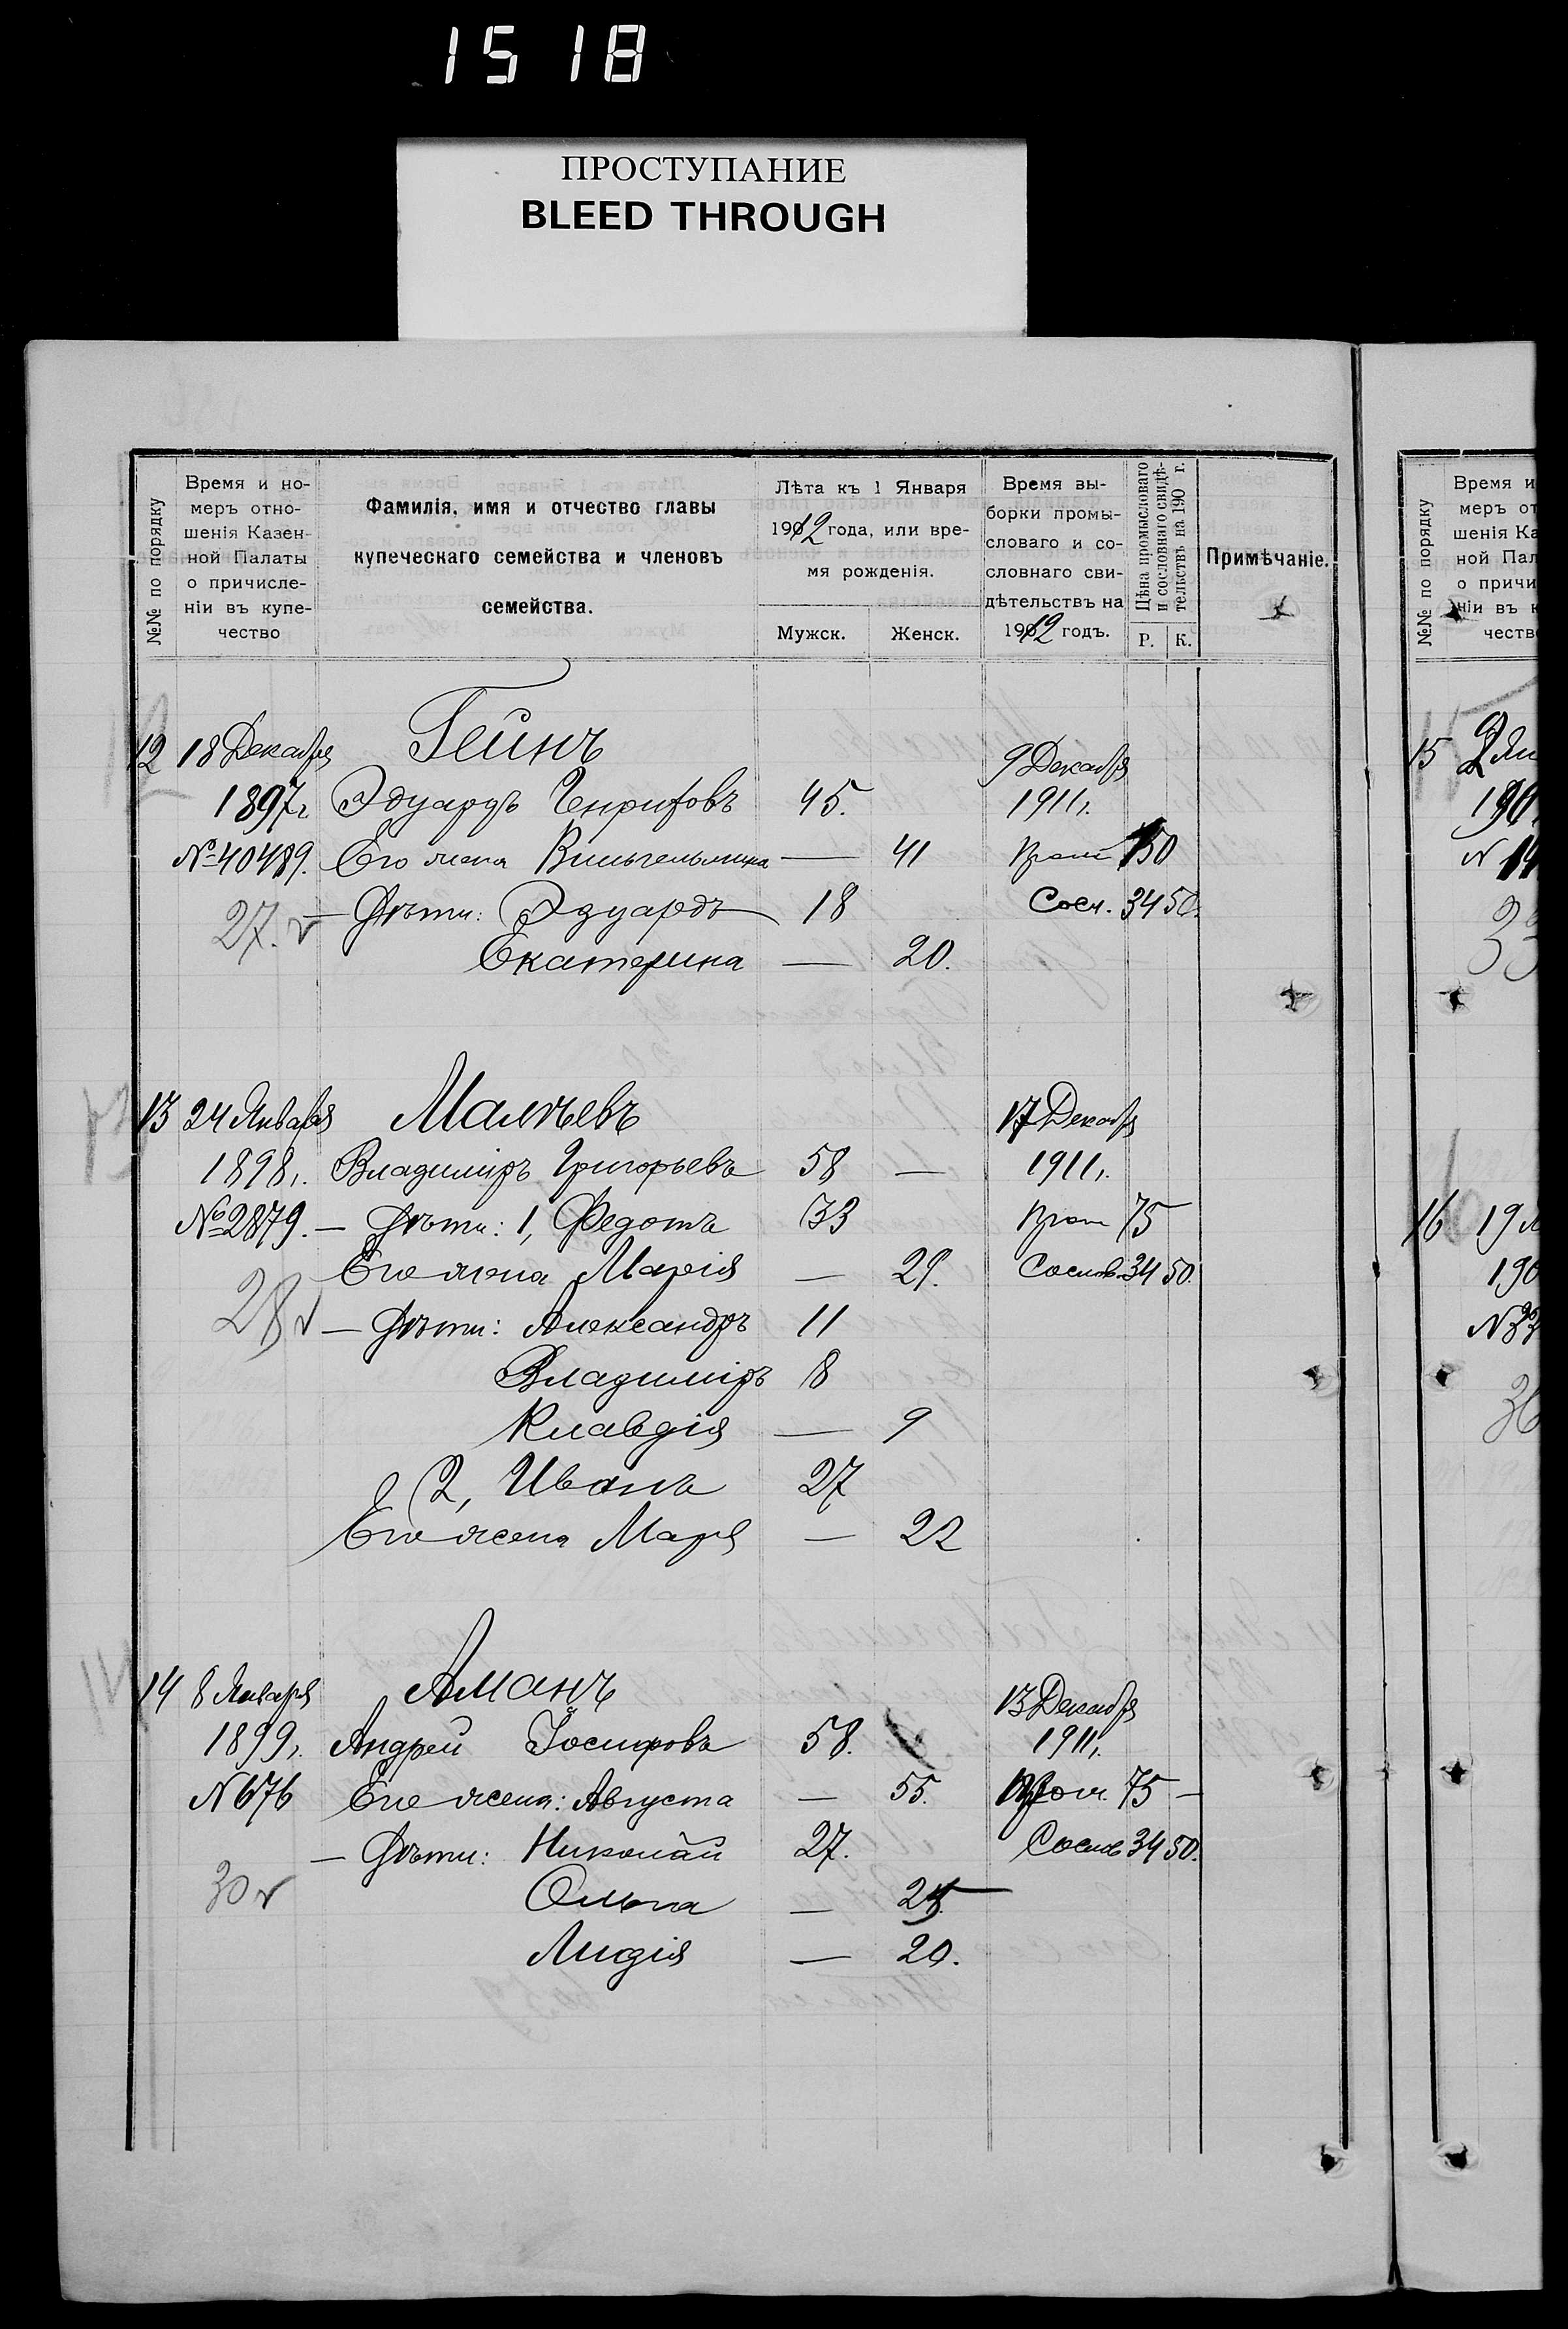 1518
ПРОСТУПАНИЕ
BLEED THROUGH
№№ по порядку
Время и но-
меръ отно-
шенія Казен-
ной Палаты
о причисле-
ніи въ купе-
чество
Фамилія, имя и отчество главы
купеческаго семейства и членовъ
семейства.
Лѣта къ 1 Января
1912 года, или вре-
мя рожденія.
Мужск. Женск.
Время вы-
борки промы-
словаго и со-
словнаго сви-
дѣтельствъ на
1912 годъ.
Цѣна промысловаго
и сословнаго свидѣ-
тельствъ на 190 г.
Р. К.
Примѣчаніе.
12 18 Декабря Гейнъ 9 Декабря
1897 г. Эдуардъ Генриховъ 45. 1911 г.
№ 40489. Его жена Вильгельмина — 41 Пром 150
27. — Дѣти: Эдуардъ 18 Сосл. 34 50.
Екатерина — 20.
13 24 Января Малѣевъ 17 Декабря
1898 г. Владиміръ Григорьевъ 58 — 1911 г.
№ 2879. — Дѣти: 1, Федотъ 33 Пром 75
Его жена Марія — 29. Сослов. 34 50.
28 — Дѣти: Александръ 11
Владиміръ 8
Клавдія — 9
2, Иванъ 27
Его жена Марія — 22
14 8 Января Аманъ 13 Декабря
1899 г. Андрей Іосифовъ 58. 1911 г.
N 676 Его жена: Августа — 55. Пром. 75 —
— Дѣти: Николай 27. Сослов 34 50.
30 Ольга —
Лидія — 20.
№№ по порядку
Время и
меръ от
шенія Ка
ной Пал
о причи
ніи въ к
чество
15
16 19
190